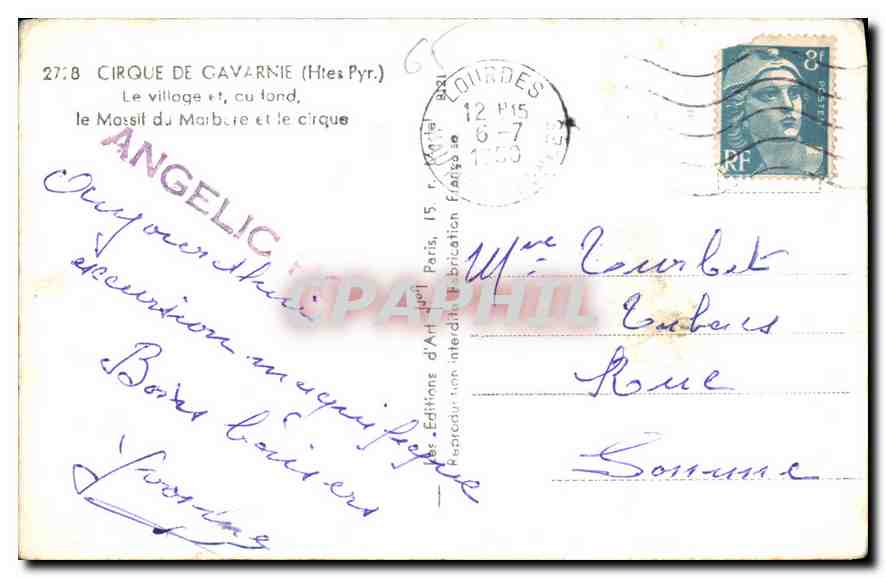 2728 CIRQUE DE GAVARNIE (Htes Pyr.)
Le village et, au fond,
le Massif du Marboré et le cirque
ANGELIC
Aujourd'hui
excursion magnifique
Bons baisers
Yvonne
65
LOURDES
12 H15
6-7
1950
8F
POSTES
RF
Les Editions d'Art Yvon Paris, 15, r. Martel
Reproduction interdite Fabrication Française
CPAPHIL
Mme Tourbet
Rue
Somme